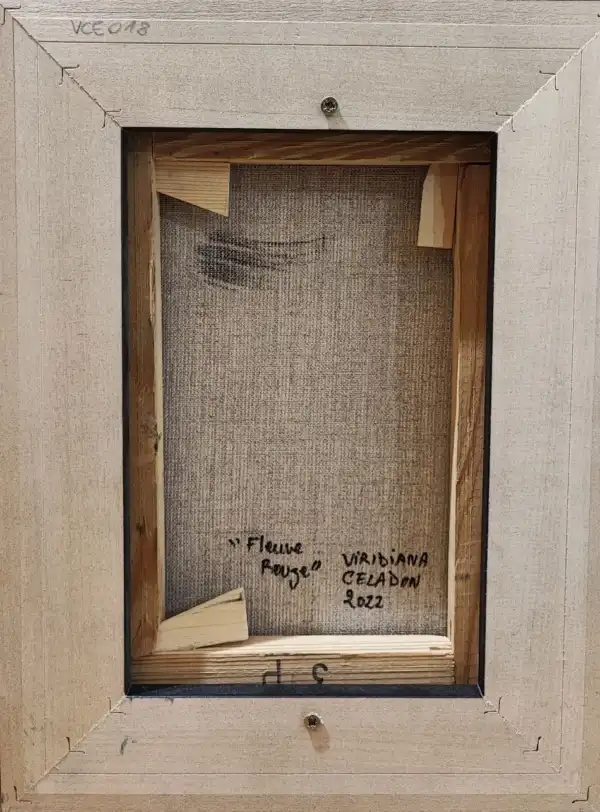 VCE018
"Fleuve
Rouge"
VIRIDIANA
CELADON
2022